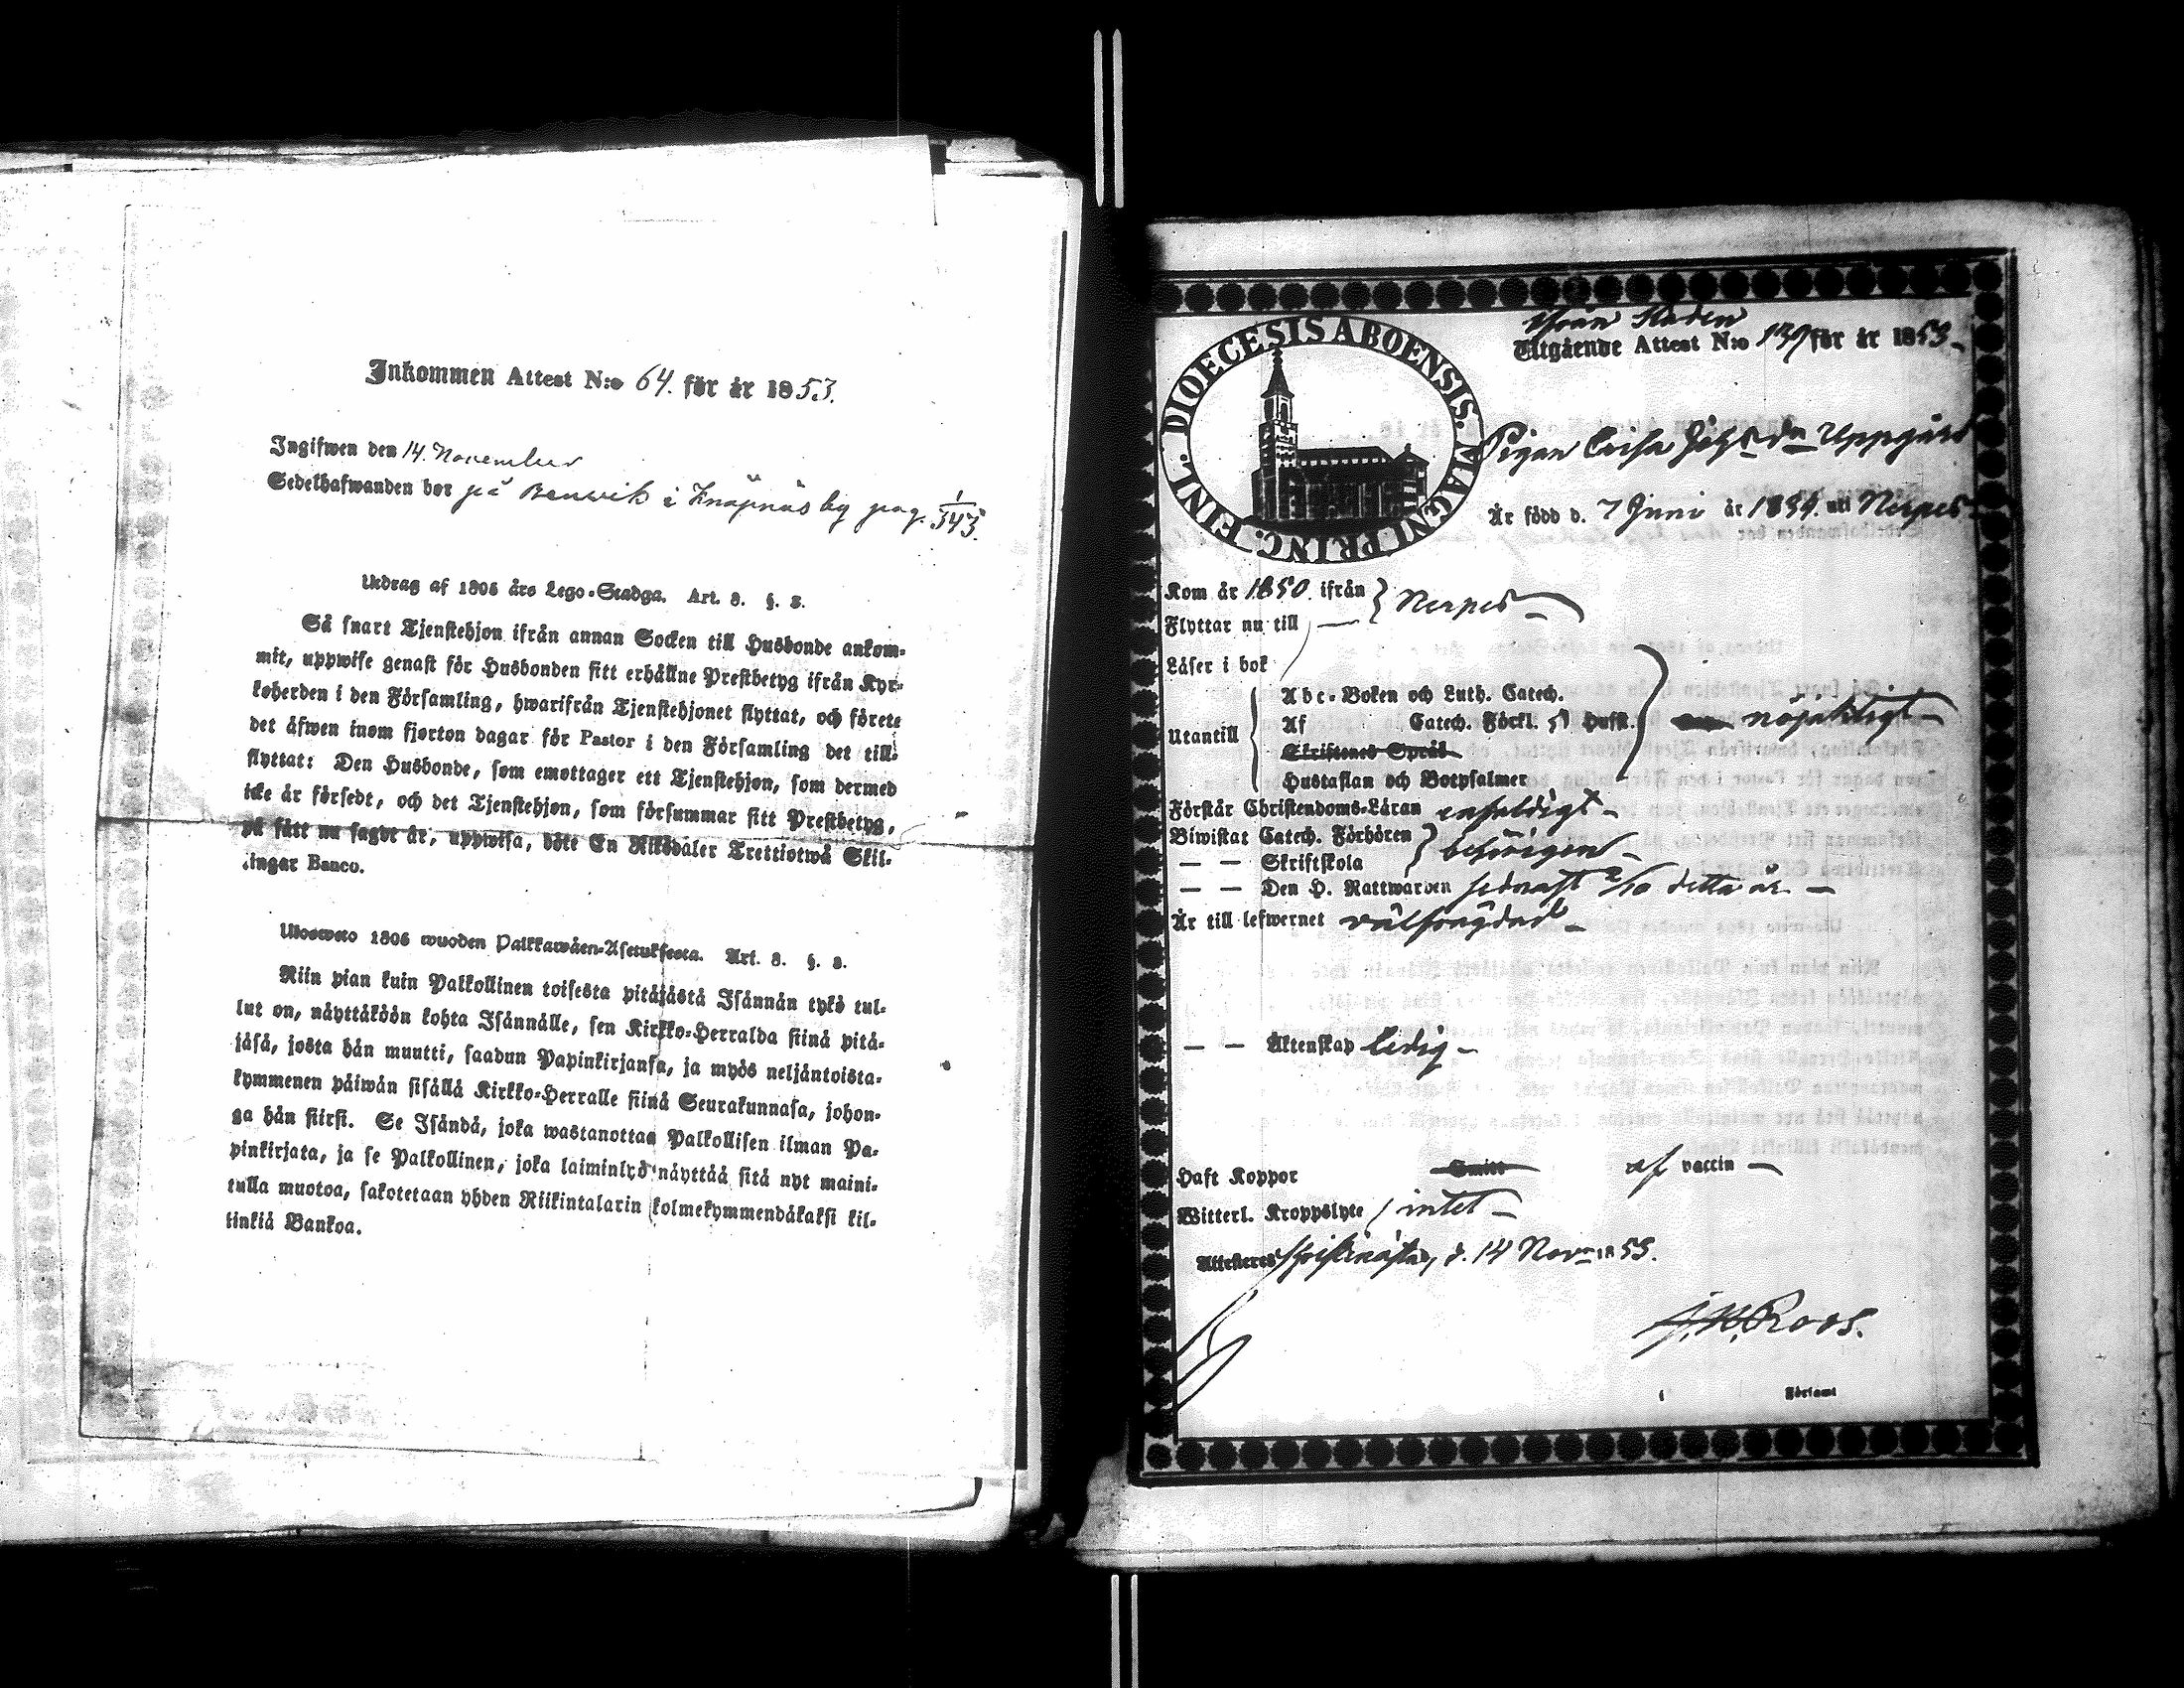 Inkommen Attest N:o 64. för år 1853.
Ingifwen den 14. November
Sedelhafwanden bor på Benvik i Knåpnäs by pag. 1/343.
Utdrag af 1805 års Lego-Stadga. Art. 3. §. 3.
Så snart Tjenstehjon ifrån annan Socken till Husbonde ankom-
mit, uppwise genast för Husbonden sitt erhållne Prestbetyg ifrån Kyr-
koherden i den Församling, hwarifrån Tjenstehjonet flyttat, och förete
det äfwen inom fjorton dagar för Pastor i den Församling det till-
flyttat: Den Husbonde, som emottager ett Tjenstehjon, som dermed
icke är försedt, och det Tjenstehjon, som försummar sitt Prestbetyg,
på sätt nu sagdt är, uppwisa, böte En Riksdaler Trettiotwå Skil-
lingar Banco.
Ulosweto 1805 wuoden Palkkawäen-Asetuksesta. Art. 3. §. 3.
Niin pian kuin Palkollinen toisesta pitäjästä Isännän tykö tul-
lut on, näyttäköön kohta Isännälle, sen Kirkko-Herralda siinä pitä-
jäsä, josta hän muutti, saadun Papinkirjansa, ja myös neljäntoista-
kymmenen päiwän sisällä Kirkko-Herralle siinä Seurakunnasa, johon-
ga hän siirsi. Se Isändä, joka wastanottaa Palkollisen ilman Pa-
pinkirjata, ja se Palkollinen, joka laiminlyö näyttää sitä nyt maini-
tulla muotoa, sakotetaan yhden Riikintalarin kolmekymmendäkaksi kil-
linkiä Bankoa.
FINL. DIOECESIS ABOENSIS. MAGNI PRINC.
ifrån Staden
Utgående Attest N:o 139 för år 1853.
Pigan Caisa Uppgård
Är född d. 7 Juni år 1834. uti Nerpes
Kom år 1850. ifrån } Nerpes
Flyttar nu till
Läser i bok
Utantill
Abc-Boken och Luth. Catech.
Af Catech. Förkl. Hust.
Skriftenes Språk
Hustaflan och Botpsalmer
nöjaktigt
Förstår Christendoms-Läran enfaldigt
Biwistat Catech. Förhören } behörigen
— — Skriftskola
— — Den H. Nattwarden sednast 2/10 detta år.
Är till lefwernet välfrägdad
— — Äktenskap ledig
Haft Koppor Smitt af vaccin
Witterl. Kroppslyte intet
Attesteres Christinæstad, d. 14 Nov. 1853.
J. W. Roos.
i Församl